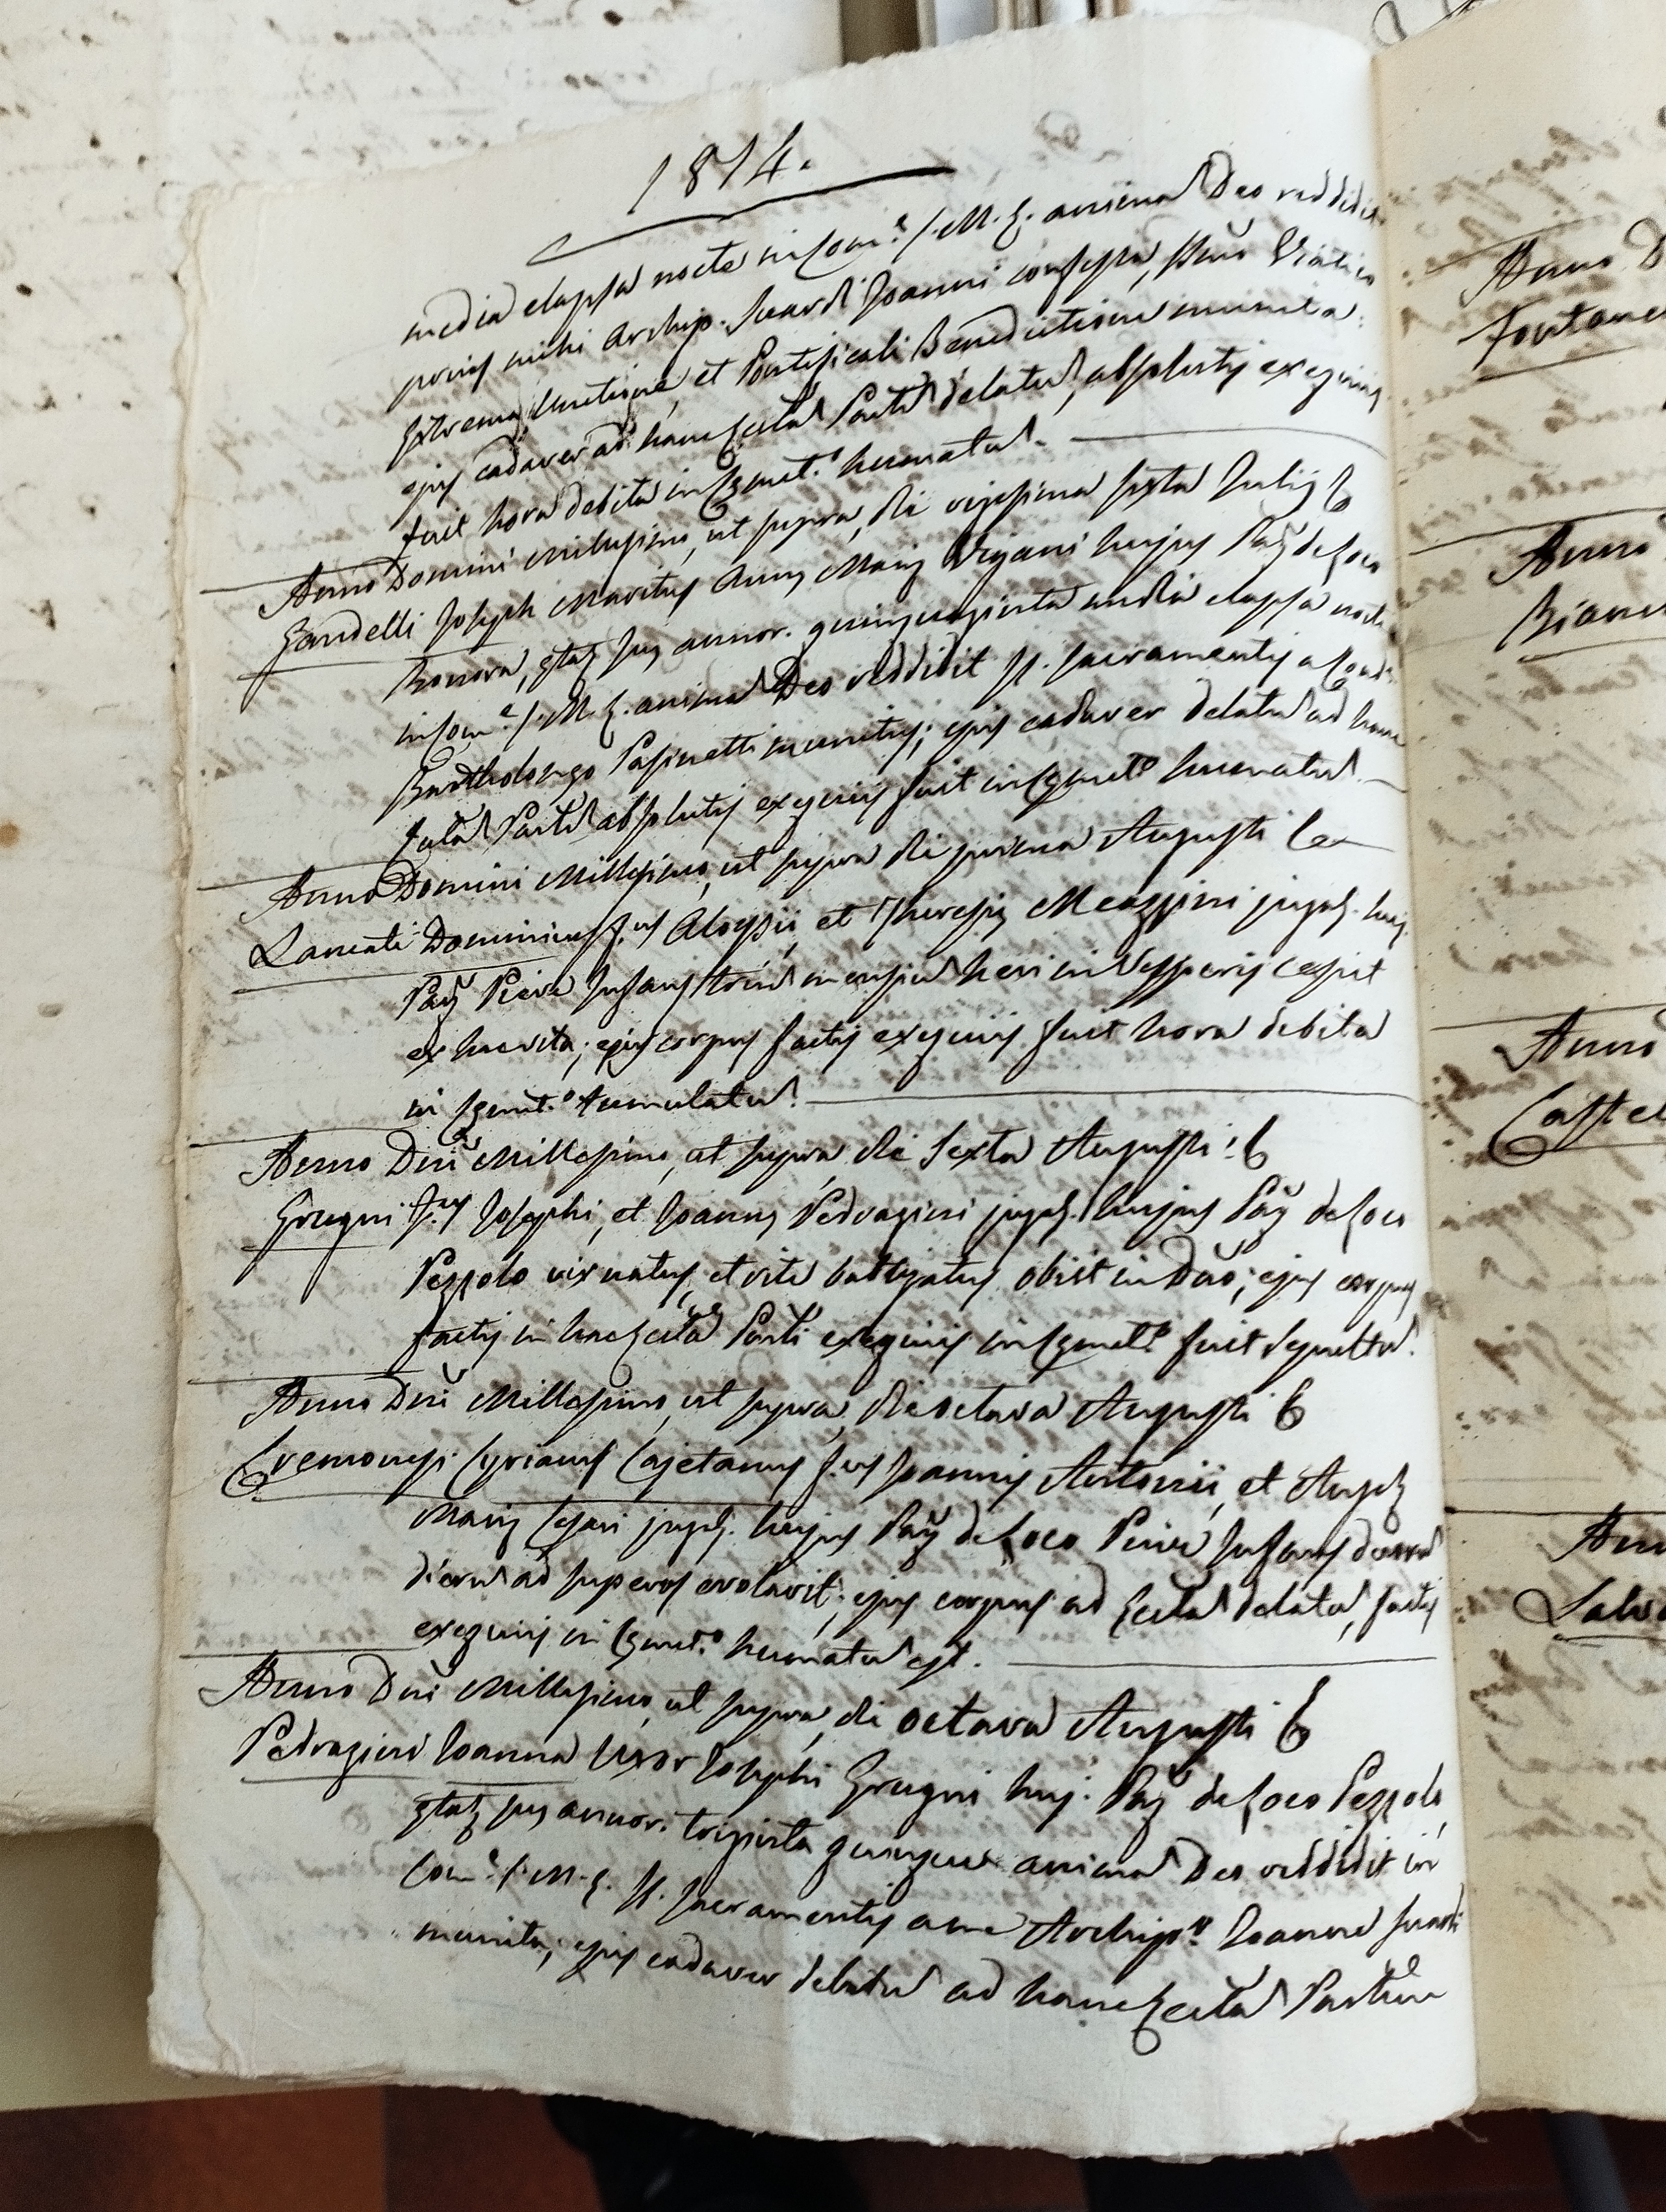 1814.
media elapsa nocte in Com.e S. M. E. anima Deo reddidit
prius mihi Archip. Suardi Joanni confessa, SSmo Viatico
Extrema Unctione, et Pontificali Benedictione munita:
ejus cadaver ad hanc Eccla Parlẽ delatu, absolutis exequiis
fuit hora debita in Cæmet.o humatu.
Anno Domini Millesimo, ut supra, die vigesima sexta Julij
Gandelli Joseph Maritus Annæ Mariæ Viganì hujus Paræ de Loco
Bonora, ætatæ suæ annor. quinquaginta media elapsa nocte
in Com.e S. M. E. anima Deo reddidit SS. Sacramentis a
Bartholomeo Pasinetti munitus; ejus cadaver delatu ad hanc
Eccla Parlẽ absolutis exequiis fuit in Cæmet.o humatu.
Anno Domini Millesimo, ut supra die prima Augusti
Lancati Dominicus F.us Aloysii, et Theresiæ Meazzini jugal. huj.
Paræ Pieve Infans triu mensiu heri in Vesperis cessit
ex hac vita; ejus corpus factis exequiis fuit hora debita
in Cæmet.o tumulatu.
Anno Dñi Millesimo, ut supra die Sexta Augusti
Grugni F.us Josephi, et Joannæ Pedrazzini jugal. hujus Paræ de Loco
Pezzolo vix natus, et rite batizatus obiit in Dño; ejus corpus
factis in hac Eccla Parli exequiis in Cæmet.o fuit sepultu.
Anno Dñi Millesimo, ut supra, die octava Augusti
Cremonesi Cyrianus Cajetanus F.us Joannis Antonii, et Angelæ
Mariæ jugal. hujus Paræ de Loco Pieve Infans duoru
dieru ad superos evolavit; ejus corpus ad Eccla delatu, factis
exequiis in Cæmet.o humatu est.
Anno Dñi Millesimo, ut supra, die octava Augusti
Pedrazini Joanna Uxor Josephi Grugni huj. Paræ de Loco Pezzolo,
ætatæ suæ annor. triginta quinque anima Deo reddidit in
Com.e S. M. E. SS. Sacramentis a me Archip.o Joanne Suardi
munita; ejus cadaver delatu ad hanc Eccla Parlem
Anno D
Fontane
Anno
Bianc
Anno
Castel
Ann
Salva